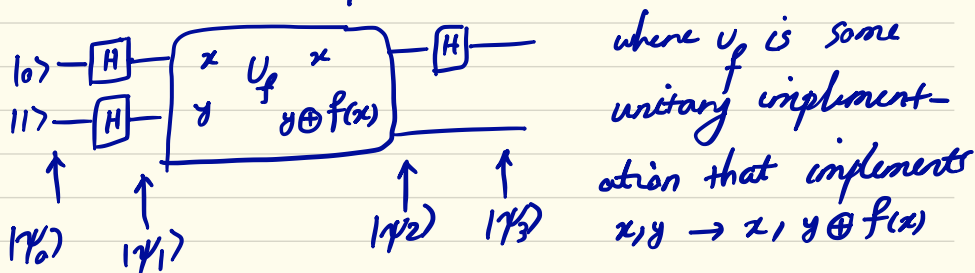 |0> H x U_f x H
|1> H y y⊕f(x)
|ψ₀⟩ |ψ₁⟩ |ψ₂⟩ |ψ₃⟩
where U_f is some
unitary implement-
ation that implements
x,y → x, y⊕f(x)